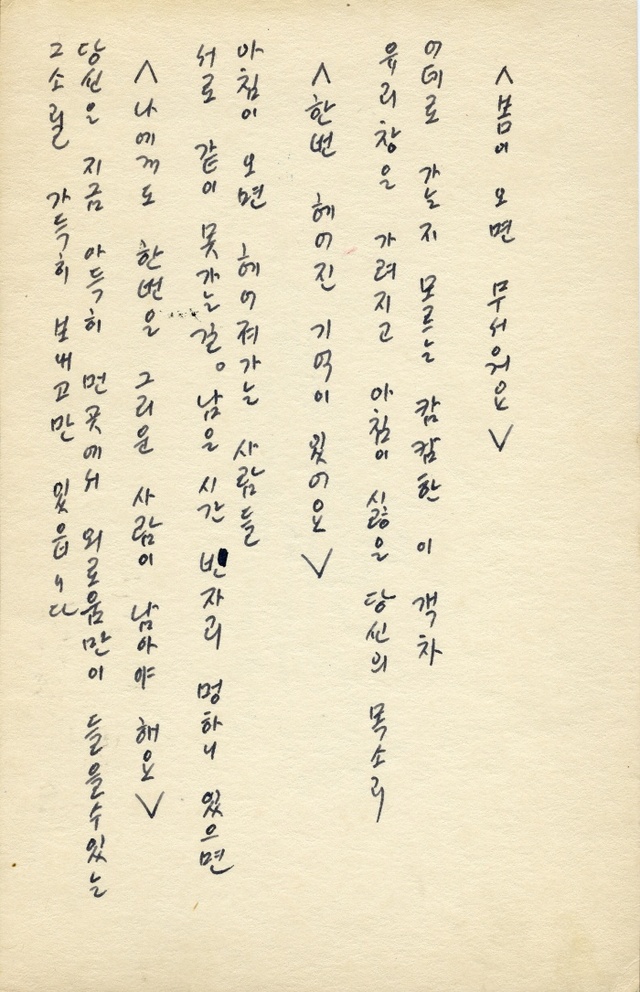 〈봄이 오면 무서워요〉
어데로 가는지 모르는 캄캄한 이 객차
유리창을 가려지고 아침이 싫은 당신의 목소리
〈한번 헤어진 기억이 있어요〉
아침이 오면 헤어져가는 사람들
서로 같이 못가는 길。 남은 시간 빈자리 멍하니 있으면
〈나에게도 한번은 그리운 사람이 남아야 해요〉
당신은 지금 아득히 먼 곳에서 외로움만이 들을수있는
그소릴 가득히 보내고만 있읍니다